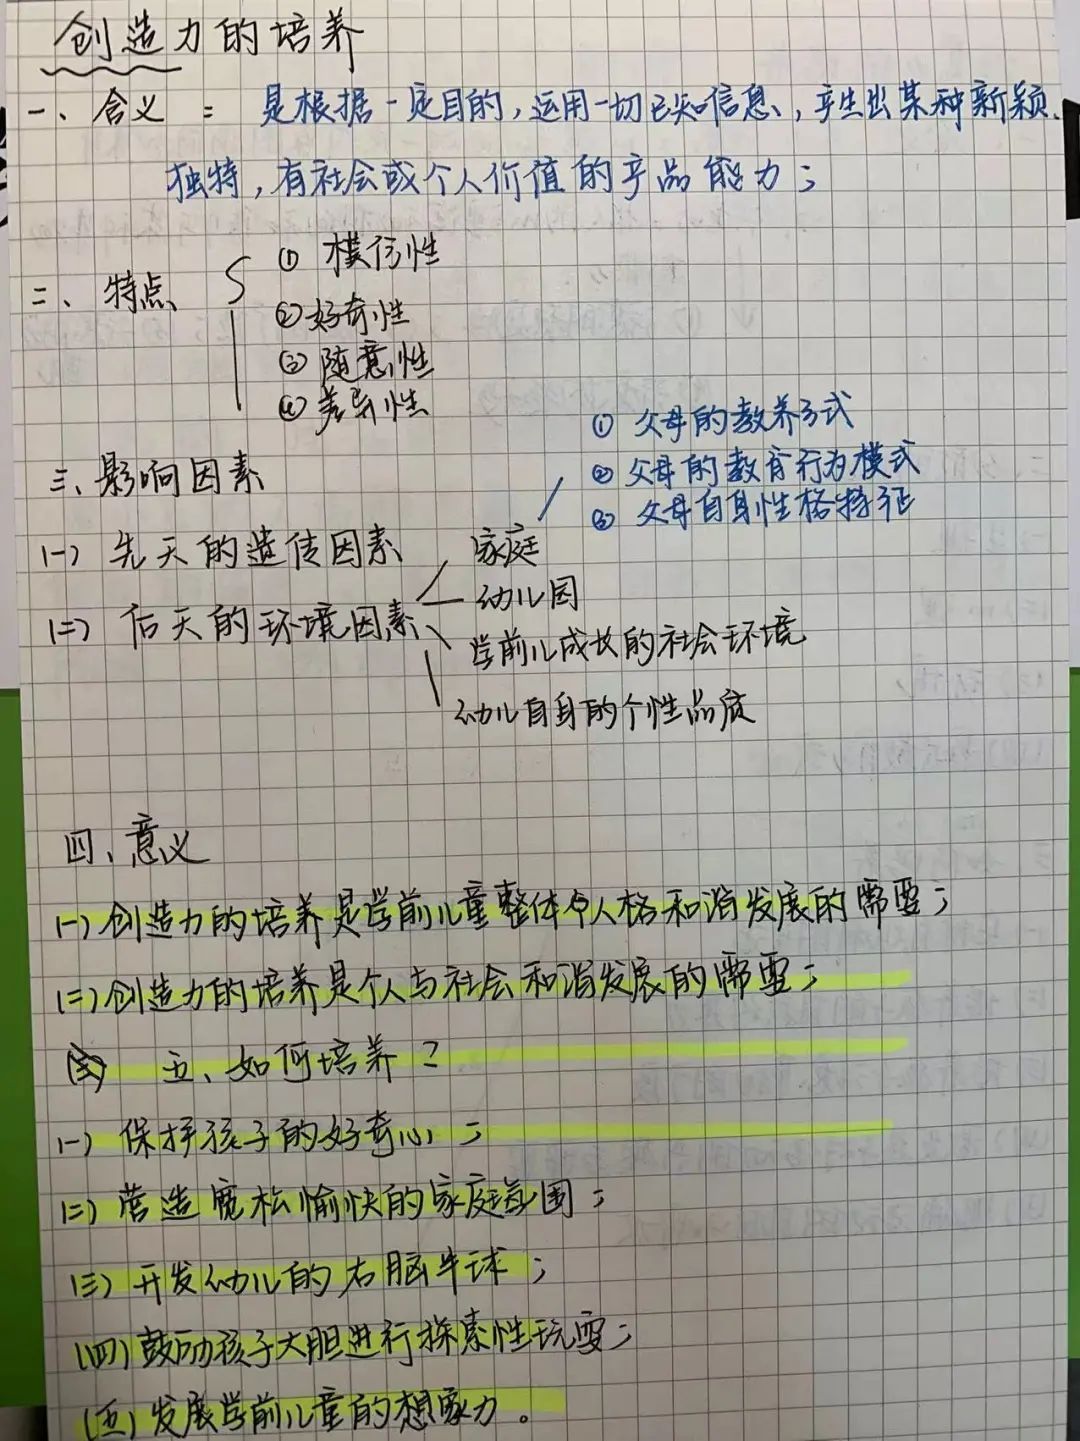 创造力的培养
一、含义：是根据一定目的,运用一切已知信息、,产生出某种新颖、
独特,有社会或个人价值的产品能力;
二、特点
① 模仿性
②好奇性
③ 随意性
④ 差异性
三、影响因素
(一) 先天的遗传因素
(二) 后天的环境因素
家庭
① 父母的教养方式
② 父母的教育行为模式
③ 父母自身性格特征
幼儿园
学前儿成长的社会环境
幼儿自身的个性品质
四、意义
(一)创造力的培养是学前儿童整体人格和谐发展的需要;
(二)创造力的培养是个人与社会和谐发展的需要;
五、如何培养?
(一) 保护孩子的好奇心;
(二) 营造宽松愉快的家庭氛围;
(三) 开发幼儿的右脑半球;
(四)鼓励孩子大胆进行探索性玩耍;
(五)发展学前儿童的想象力。